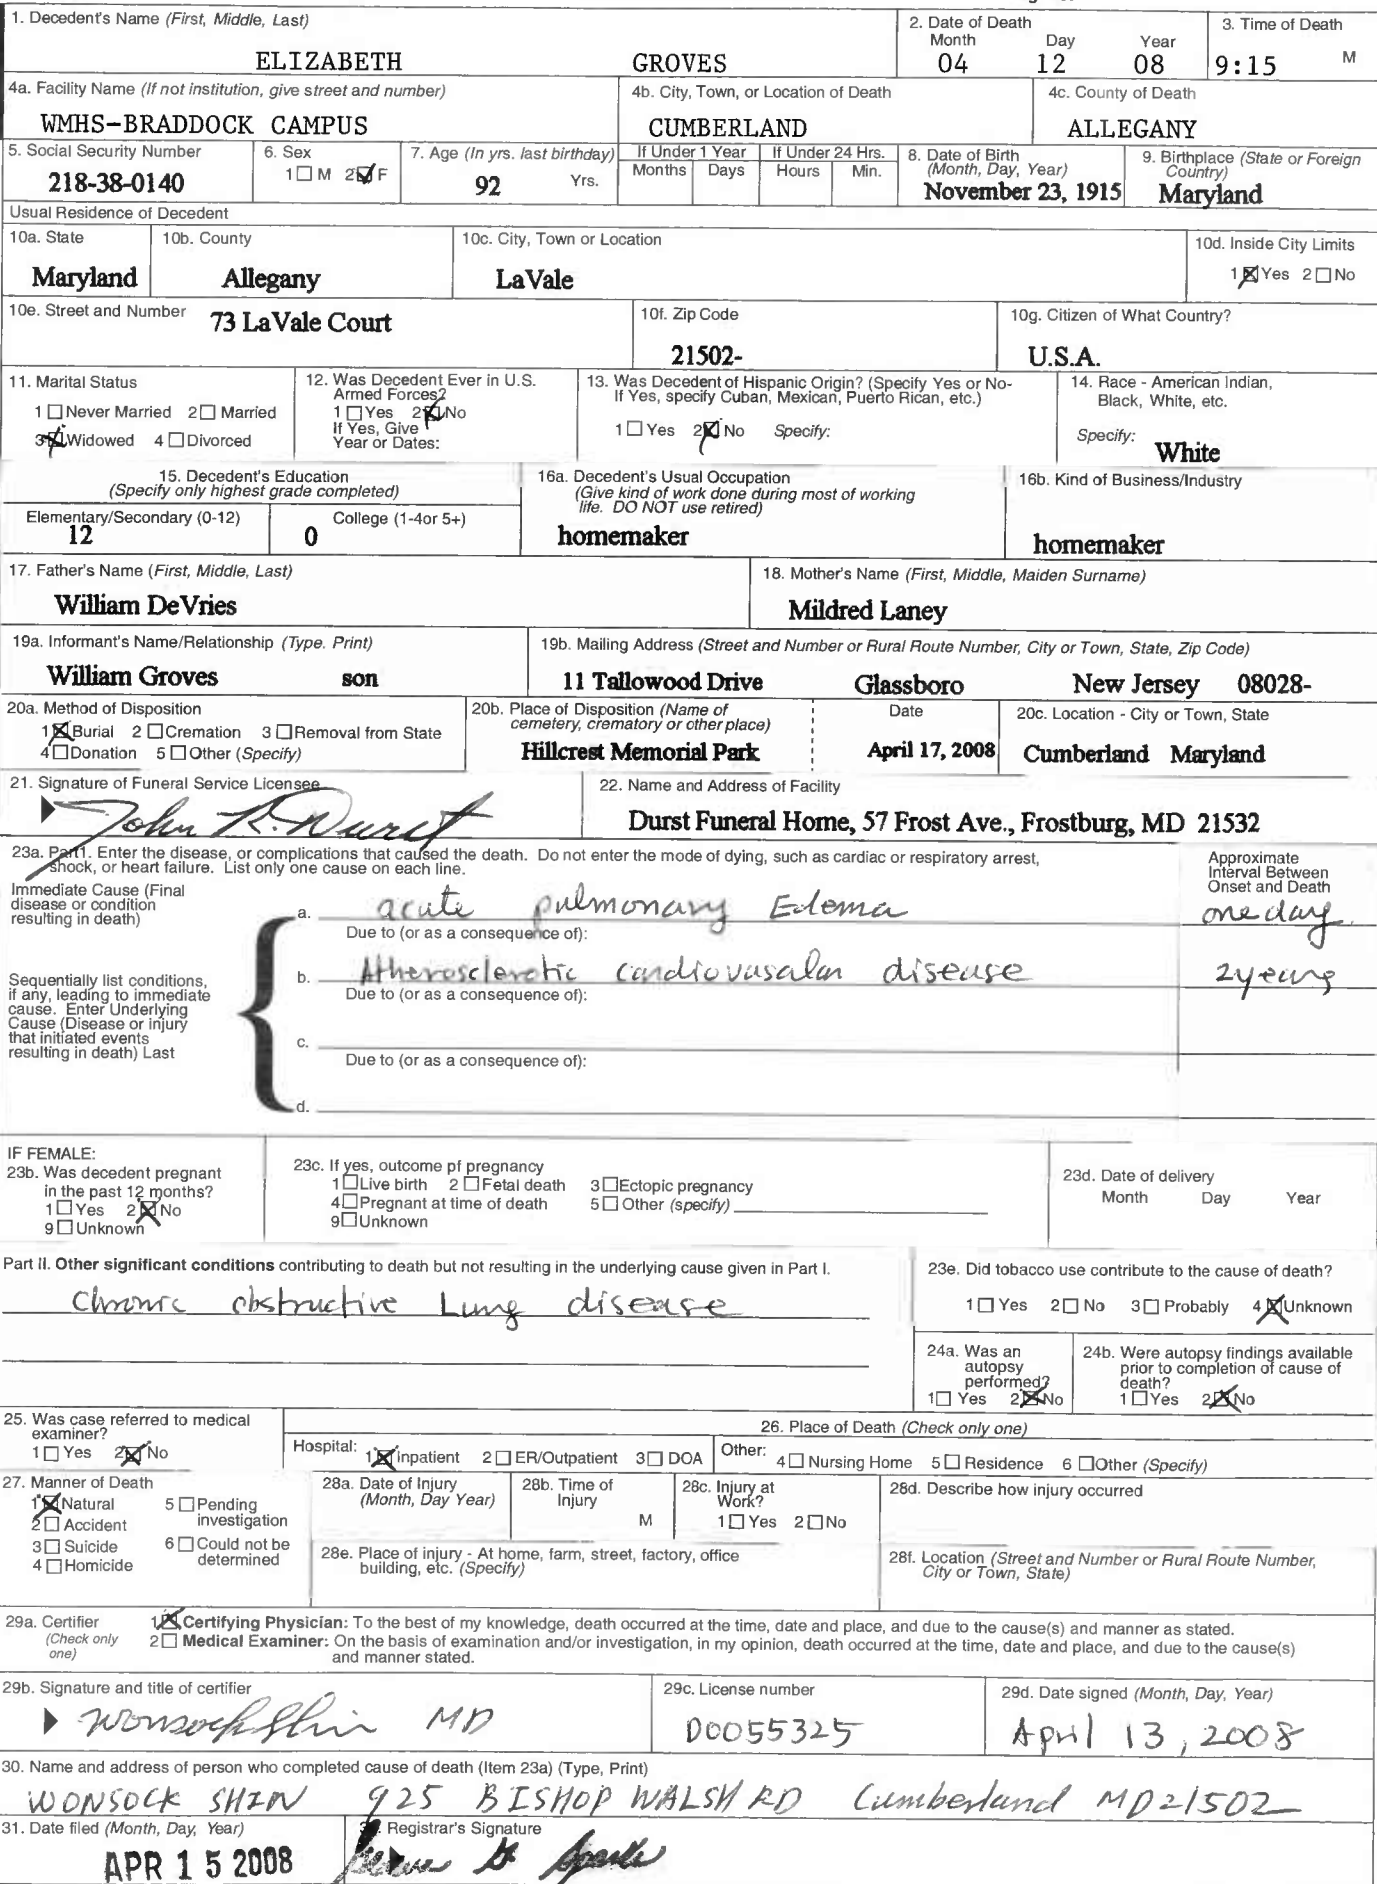 1. Decedent's Name (First, Middle, Last)
ELIZABETH GROVES
2. Date of Death
Month Day Year
04 12 08
3. Time of Death
9:15 M
4a. Facility Name (If not institution, give street and number)
WMHS-BRADDOCK CAMPUS
4b. City, Town, or Location of Death
CUMBERLAND
4c. County of Death
ALLEGANY
5. Social Security Number
218-38-0140
6. Sex
1 M 2 F
7. Age (In yrs. last birthday)
92 Yrs.
If Under 1 Year
Months Days
If Under 24 Hrs.
Hours Min.
8. Date of Birth
(Month, Day, Year)
November 23, 1915
9. Birthplace (State or Foreign
Country)
Maryland
Usual Residence of Decedent
10a. State
Maryland
10b. County
Allegany
10c. City, Town or Location
LaVale
10d. Inside City Limits
1 Yes 2 No
10e. Street and Number
73 LaVale Court
10f. Zip Code
21502-
10g. Citizen of What Country?
U.S.A.
11. Marital Status
1 Never Married 2 Married
3 Widowed 4 Divorced
12. Was Decedent Ever in U.S.
Armed Forces?
1 Yes 2 No
If Yes, Give
Year or Dates:
13. Was Decedent of Hispanic Origin? (Specify Yes or No-
If Yes, specify Cuban, Mexican, Puerto Rican, etc.)
1 Yes 2 No Specify:
14. Race - American Indian,
Black, White, etc.
Specify:
White
15. Decedent's Education
(Specify only highest grade completed)
Elementary/Secondary (0-12)
12
College (1-4or 5+)
0
16a. Decedent's Usual Occupation
(Give kind of work done during most of working
life. DO NOT use retired)
homemaker
16b. Kind of Business/Industry
homemaker
17. Father's Name (First, Middle, Last)
William DeVries
18. Mother's Name (First, Middle, Maiden Surname)
Mildred Laney
19a. Informant's Name/Relationship (Type. Print)
William Groves son
19b. Mailing Address (Street and Number or Rural Route Number, City or Town, State, Zip Code)
11 Tallowood Drive Glassboro New Jersey 08028-
20a. Method of Disposition
1 Burial 2 Cremation 3 Removal from State
4 Donation 5 Other (Specify)
20b. Place of Disposition (Name of
cemetery, crematory or other place)
Hillcrest Memorial Park
Date
April 17, 2008
20c. Location - City or Town, State
Cumberland Maryland
21. Signature of Funeral Service Licensee
John R. Durst
22. Name and Address of Facility
Durst Funeral Home, 57 Frost Ave., Frostburg, MD 21532
23a. Part1. Enter the disease, or complications that caused the death. Do not enter the mode of dying, such as cardiac or respiratory arrest,
shock, or heart failure. List only one cause on each line.
Approximate
Interval Between
Onset and Death
Immediate Cause (Final
disease or condition
resulting in death)
a. acute pulmonary Edema one day
Due to (or as a consequence of):
Sequentially list conditions,
if any, leading to immediate
cause. Enter Underlying
Cause (Disease or injury
that initiated events
resulting in death) Last
b. Atherosclerotic cardiovasalar disease 2years
Due to (or as a consequence of):
c.
Due to (or as a consequence of):
d.
IF FEMALE:
23b. Was decedent pregnant
in the past 12 months?
1 Yes 2 No
9 Unknown
23c. If yes, outcome pf pregnancy
1 Live birth 2 Fetal death 3 Ectopic pregnancy
4 Pregnant at time of death 5 Other (specify)
9 Unknown
23d. Date of delivery
Month Day Year
Part II. Other significant conditions contributing to death but not resulting in the underlying cause given in Part I.
Chronic obstructive Lung disease
23e. Did tobacco use contribute to the cause of death?
1 Yes 2 No 3 Probably 4 Unknown
24a. Was an
autopsy
performed?
1 Yes 2 No
24b. Were autopsy findings available
prior to completion of cause of
death?
1 Yes 2 No
25. Was case referred to medical
examiner?
1 Yes 2 No
26. Place of Death (Check only one)
Hospital: 1 Inpatient 2 ER/Outpatient 3 DOA
Other: 4 Nursing Home 5 Residence 6 Other (Specify)
27. Manner of Death
1 Natural 5 Pending
investigation
2 Accident
3 Suicide 6 Could not be
determined
4 Homicide
28a. Date of Injury
(Month, Day Year)
28b. Time of
Injury
M
28c. Injury at
Work?
1 Yes 2 No
28d. Describe how injury occurred
28e. Place of injury - At home, farm, street, factory, office
building, etc. (Specify)
28f. Location (Street and Number or Rural Route Number,
City or Town, State)
29a. Certifier
(Check only
one)
1 Certifying Physician: To the best of my knowledge, death occurred at the time, date and place, and due to the cause(s) and manner as stated.
2 Medical Examiner: On the basis of examination and/or investigation, in my opinion, death occurred at the time, date and place, and due to the cause(s)
and manner stated.
29b. Signature and title of certifier
Wonsock Shin MD
29c. License number
D0055325
29d. Date signed (Month, Day, Year)
April 13, 2008
30. Name and address of person who completed cause of death (Item 23a) (Type, Print)
WONSOCK SHIN 925 BISHOP WALSH RD Cumberland MD 21502
31. Date filed (Month, Day, Year)
APR 15 2008
Registrar's Signature